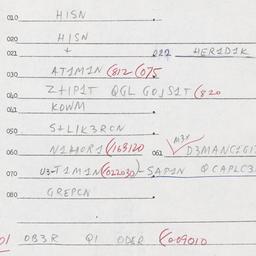 010 HISN
020 HISN
021 + 022 HER1D1K
030 AT1M1N (812 (075
040 Z+1P1T QGL GOJS1T (820
041 KOWM
050 S+L1K3RCN
060 N1HOR1 (163120 061 M3X D3MANC1G1
070 U3-T1M1N (022030)-SAP1N QCAPLC3
080 GREPCN
01 OB3R Q1 ODER (009010